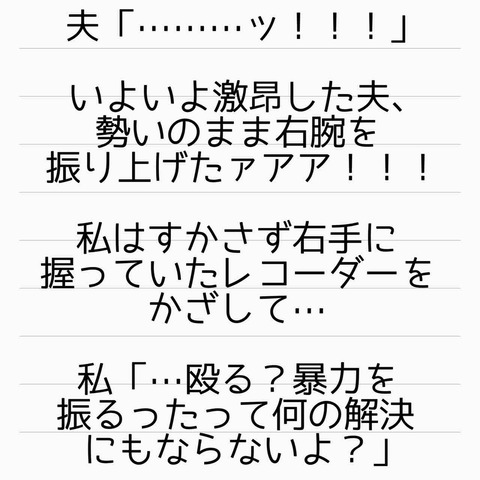 夫「………ッ！！！」
いよいよ激昂した夫、
勢いのまま右腕を
振り上げたァアア！！！
私はすかさず右手に
握っていたレコーダーを
かざして…
私「…殴る？暴力を
振るったって何の解決
にもならないよ？」